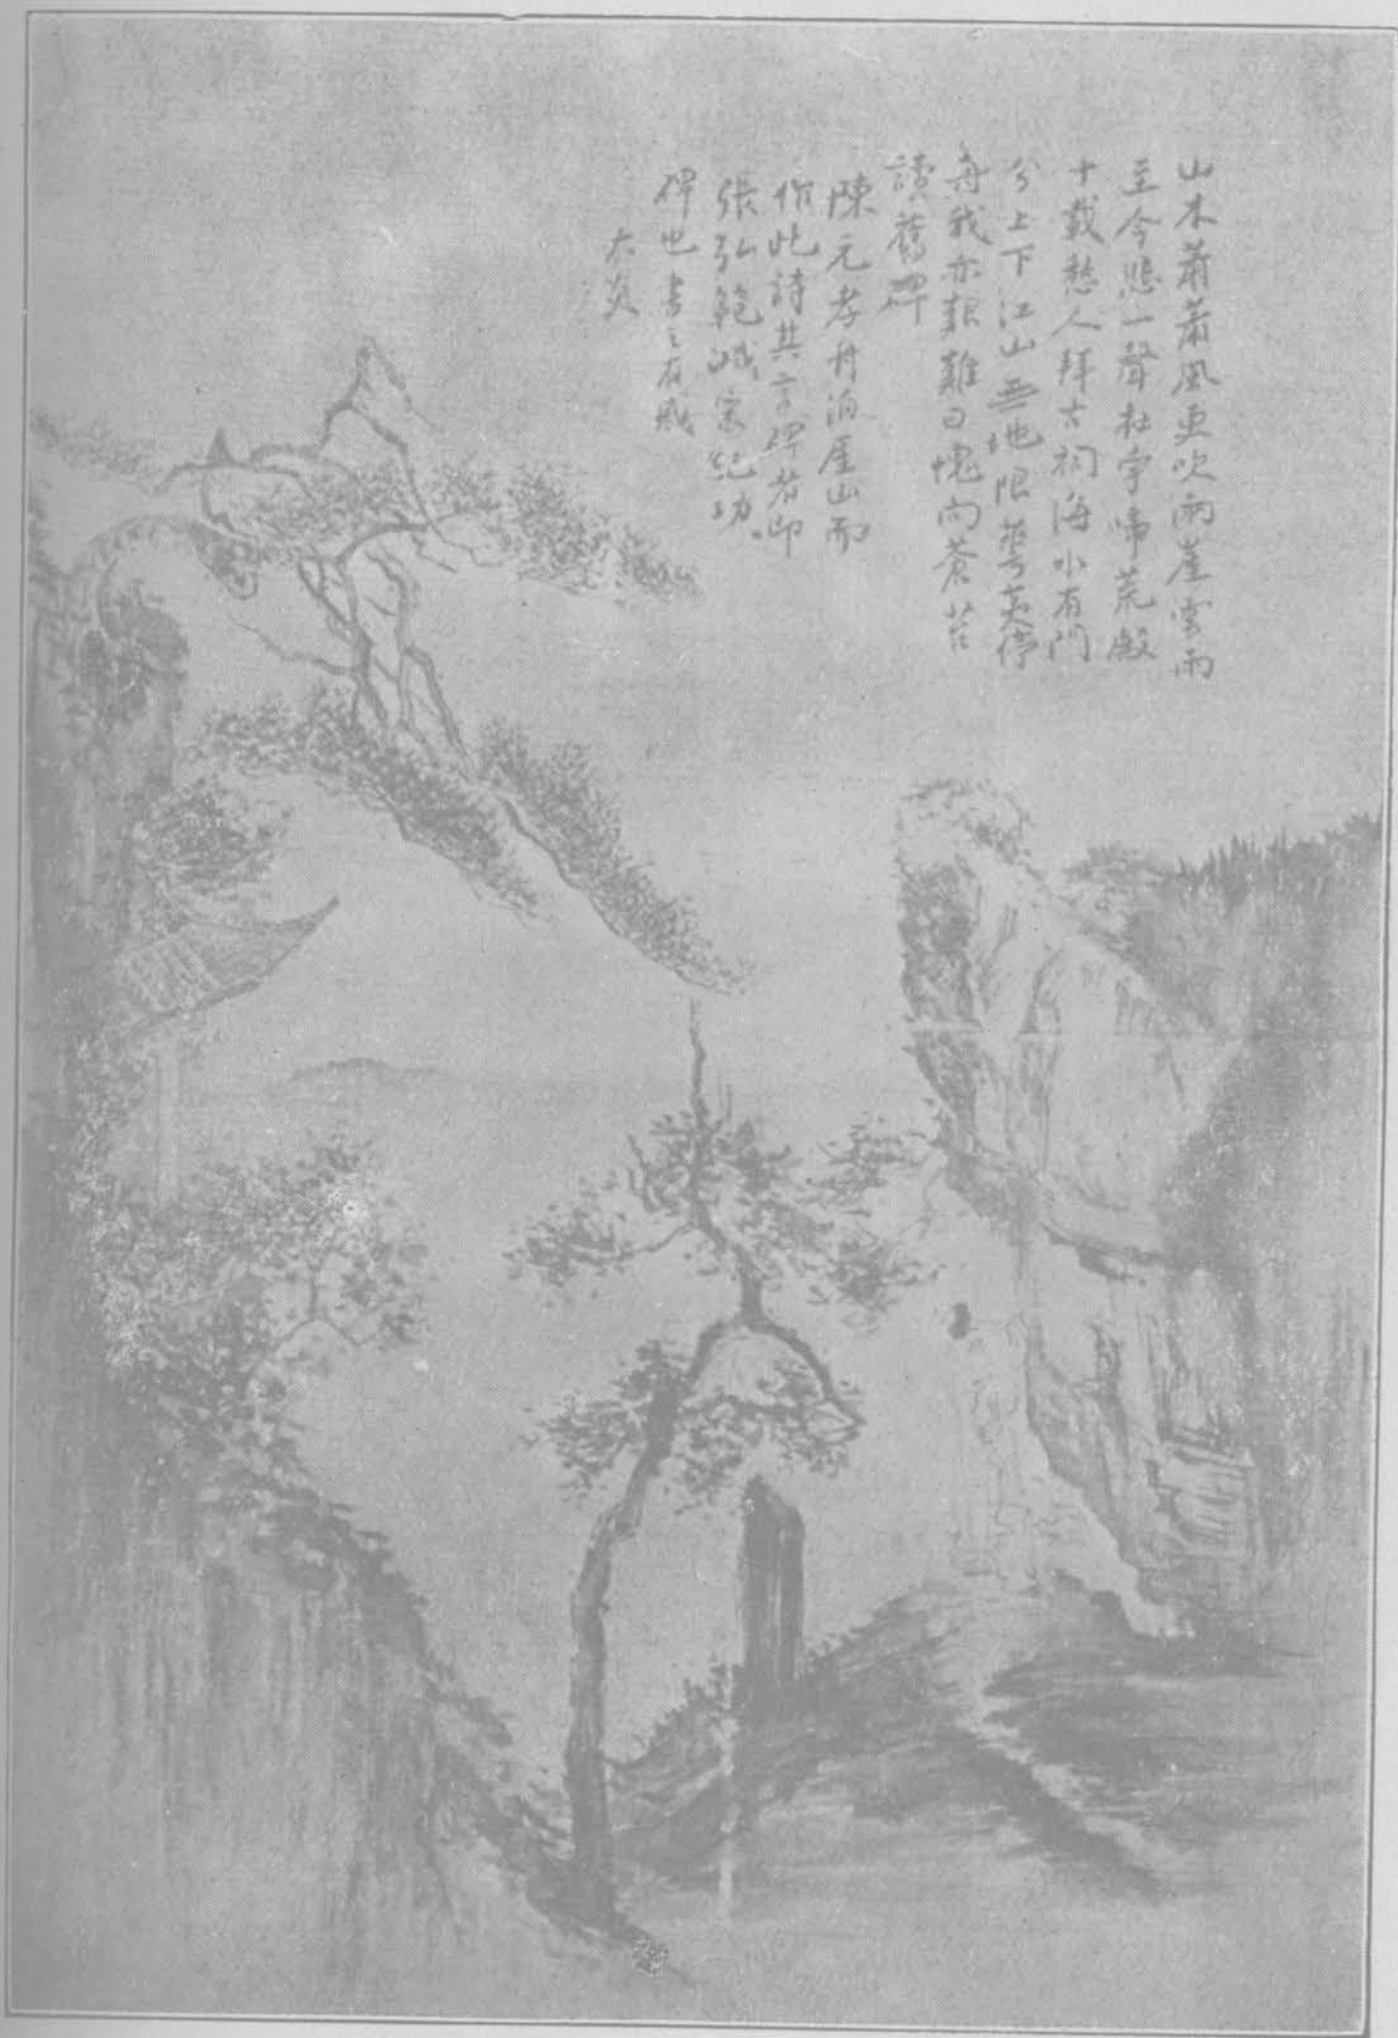 山木蕭蕭風更吹兩崖雲雨
至今悲一聲杜宇啼荒殿
十載愁人拜古祠海水有門
分上下江山無地限華夷停
舟我亦艱難日愧向蒼苔
讀舊碑
陳元孝舟泊厓山而
作此詩其言碑者即
張弘範滅宋紀功
碑也書之有感
太炎